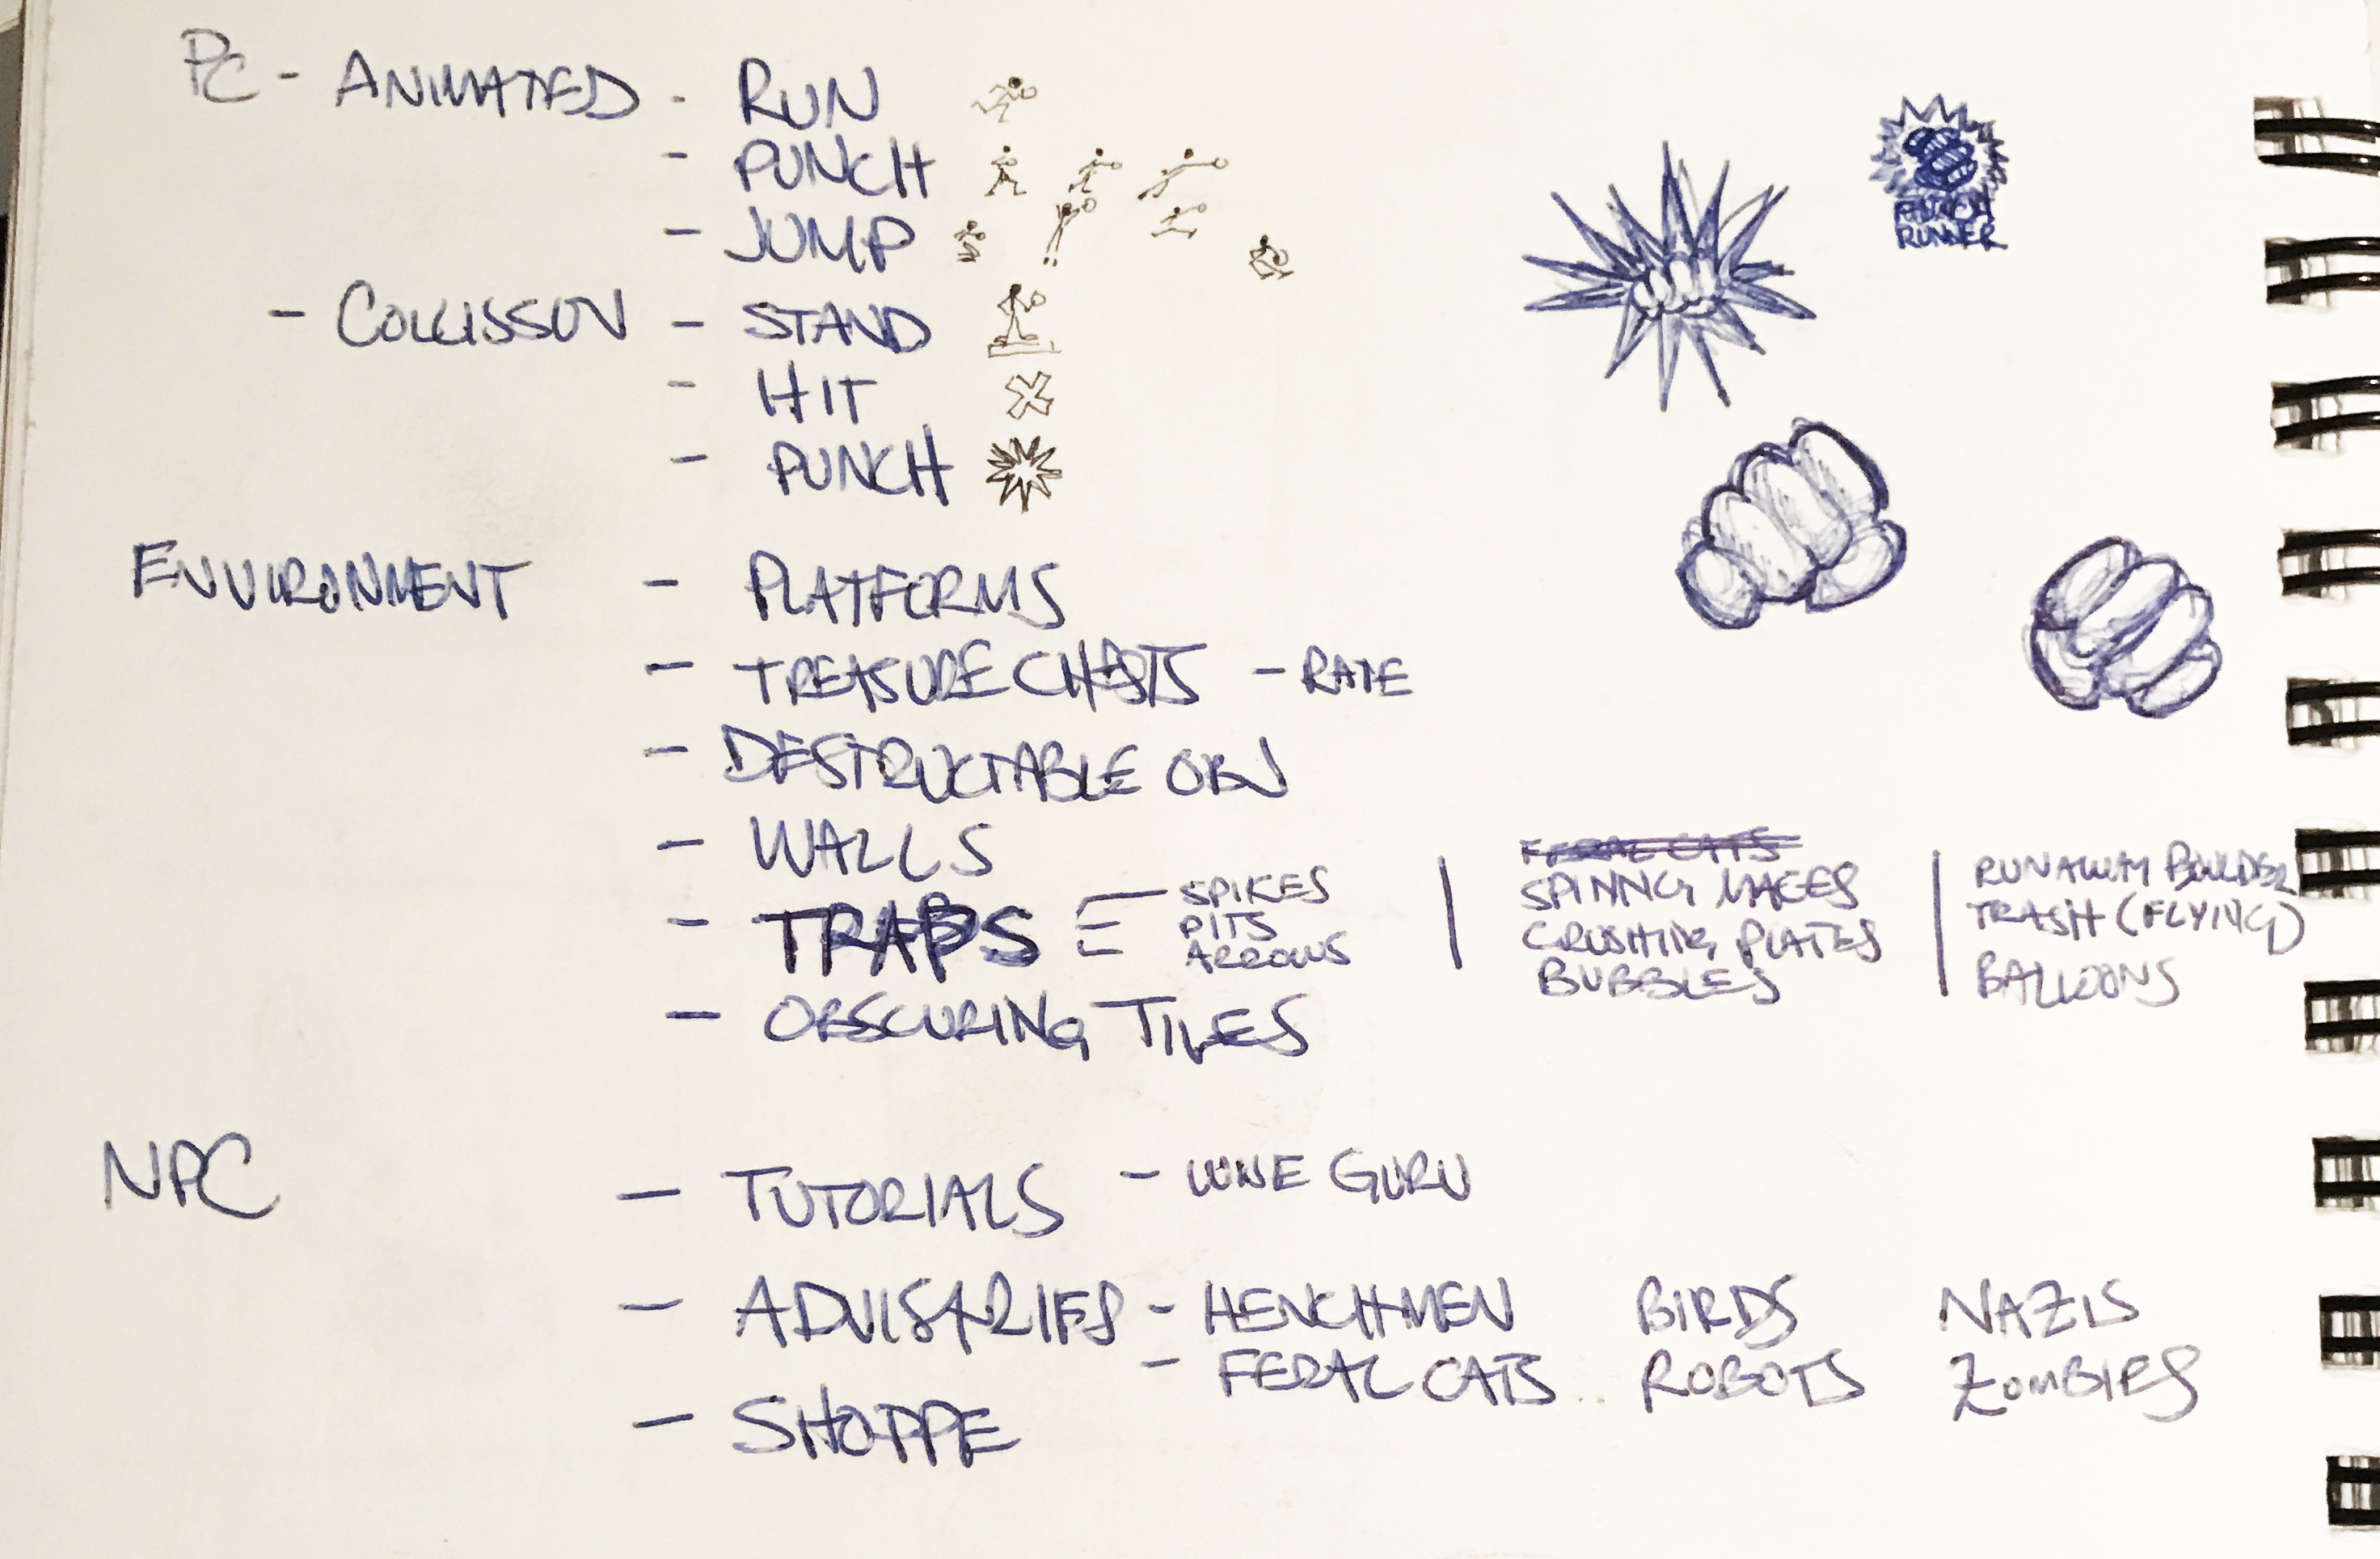 PC - ANIMATED - RUN
- PUNCH
- JUMP
- COLLISSON - STAND
- HIT
- PUNCH
RUNNER
ENVIRONMENT - PLATFORMS
- TREASURE CHESTS - RATE
- DESTRUCTABLE OBJ
- WALLS
- TRAPS
SPIKES
PITS
ARROWS
FERAL CATS
SPINNG MACES
CRUSHING PLATES
BUBBLES
RUNAWAY BOULDER
TRASH (FLYING)
BALLOONS
- OBSCURING TILES
NPC - TUTORIALS - WINE GURU
- ADVISARIES - HENCHMEN BIRDS NAZIS
- FERAL CATS ROBOTS ZOMBIES
- SHOPPE